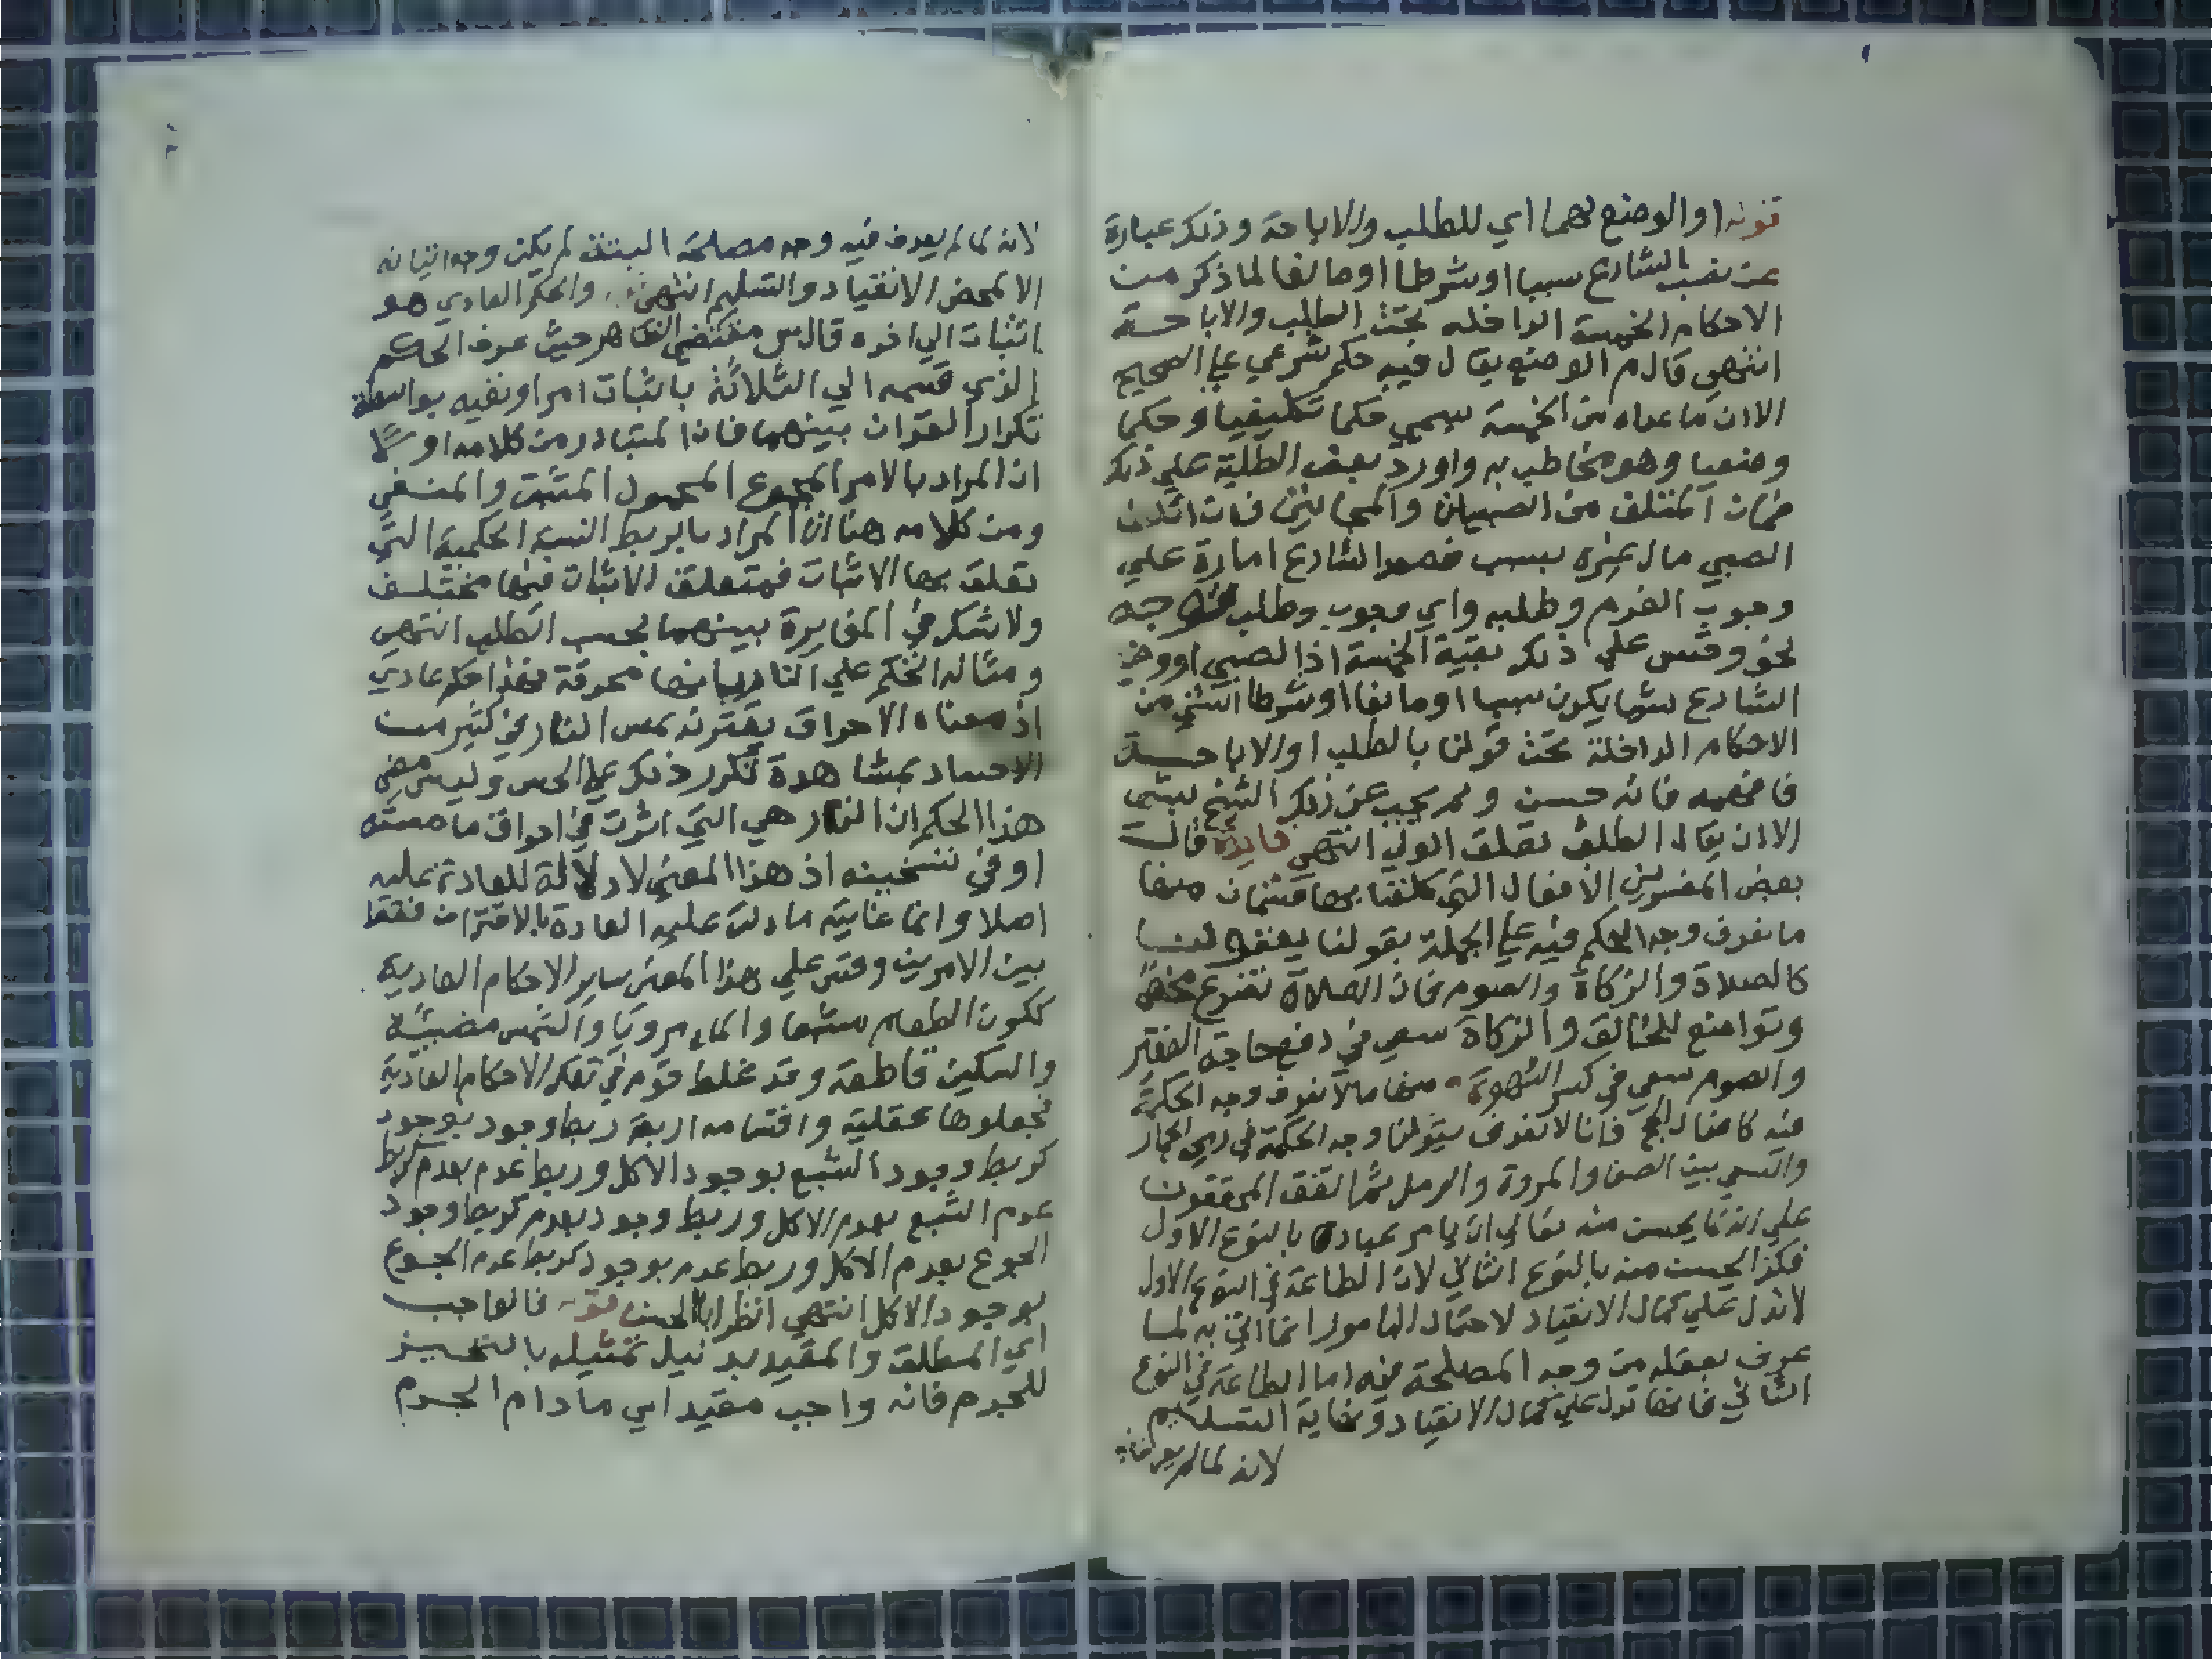 قوله او الوضع لهما اي للطلب والاباحة وذلك عبارة
عن نصب الشارع سببا او شرطا او مانعا لما ذكر من
الاحكام الخمسة الداخله تحت الطلب والاباحة
انتهي قال م الوضع يقال فيه حكم شرعي علي الصحيح
الا ان ما عداه من الخمسة يسمي حكما تكليفيا وحكما
وضعيا وهو مخاطب به واورد بعض الطلبة علي ذلك
ضمان المتلف من الصبيان والمجانين فان اتلاف
الصبي مال غيره سبب نصبه الشارع امارة علي
وجوب الغرم وطلبه واي وجوب وطلب
نحو وقس علي ذلك بقية الخمسة اذا لصبي او وضع
الشارع شيا يكون سببا او مانعا او شرطا لشي من
الاحكام الداخلة تحت قولنا بالطلب او الاباحة
فافهمه فانه حسن ولم يجب عن ذلك الشيخ بشي
الا ان يقال الطلب تعلق الولي انتهي فايدة قال
بعض المفسرين الافعال التي كلفنا بها قسمان منها
ما نعرف وجه الحكم فيه علي الجملة بقولنا
كالصلاة والزكاة والصوم فان الصلاة تضرع محض
وتواضع للخالق والزكاة سعي في دفع حاجة الفقير
والصوم سعي في كسر الشهوة ومنها ما لا نعرف وجه الحكمة
فيه كافعال الحج فانا لا نعرف بعقولنا وجه الحكمة في رمي الجمار
والسعي بين الصفا والمروة والرمل ثم اتفق المحققون
علي انه كما يحسن منه تعالي ان يامر عباده بالنوع الاول
فكذا يحسن منه بالنوع الثاني لان الطاعة في النوع الاول
لا تدل علي كمال الانقياد لاحتمال المامور انما اتي به لما
عرف بعقله من وجه المصلحة فيه اما الطاعة في النوع
الثاني فانها تدل علي كمال الانقياد ونهاية التسليم
لانه لما لم يعرف فيه
لانه لما لم يعرف فيه وجه مصلحة البتة لم يكن وجه اتيانه
الا لمحض الانقياد والتسليم انتهي والحكم العادي هو
اثبات الي اخره قال س مقتضي الظاهر حيث عرف الحكم
الذي قسمه الي الثلاثة باثبات امر او نفيه بواسطة
تكرار القران بينهما فان المتبادر من كلامه اولا
ان المراد بالامر المجموع المحمول المثبت والمنفي
ومن كلامه هنا ان المراد بالربط النسبة الحكمية التي
تعلق بها الاثبات فمتعلق الاثبات فيهما مختلف
ولا شك في المغايرة بينهما بحسب الطلب انتهي
ومثاله الحكم علي النار بانها محرقة فهذا حكم عادي
اذ معناه الاحراق يقترن بمس النار في كثير من
الاجساد بمشاهدة تكرر ذلك علي الحس وليس معني
هذا الحكم ان النار هي التي اثرت في احراق ما مسته
او في تسخينه اذ هذا المعني لا دلالة للعادة عليه
اصلا وانما غاية ما دلت عليه العادة بالاقتران فقط
بين الامرين وقس علي هذا المعني ساير الاحكام العادية
ككون الطعام مشبعا والماء مرويا والشمس مضيئة
والسكين قاطعة وقد غلط قوم في تلك الاحكام العادية
فجعلوها عقلية واقسامه اربعة ربط وجود بوجود
كربط وجود الشبع بوجود الاكل وربط عدم بعدم كربط
عدم الشبع بعدم الاكل وربط وجود بعدم كربط وجود
الجوع بعدم الاكل وربط عدم بوجود كربط عدم الجوع
بوجود الاكل انتهي انظر ابا الحسن قوله فالواجب
اي المطلق والمقيد بدليل تمثيله بالتحيز
للجرم فانه واجب مقيد اي ما دام الجرم